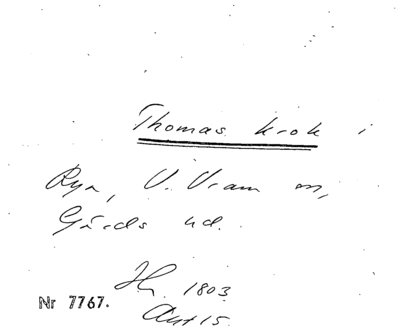 Thomas Krok i
Rya, V. Vram sn,
Gärds hd.
Hr. 1803
Nr 7767.
Aut 15.